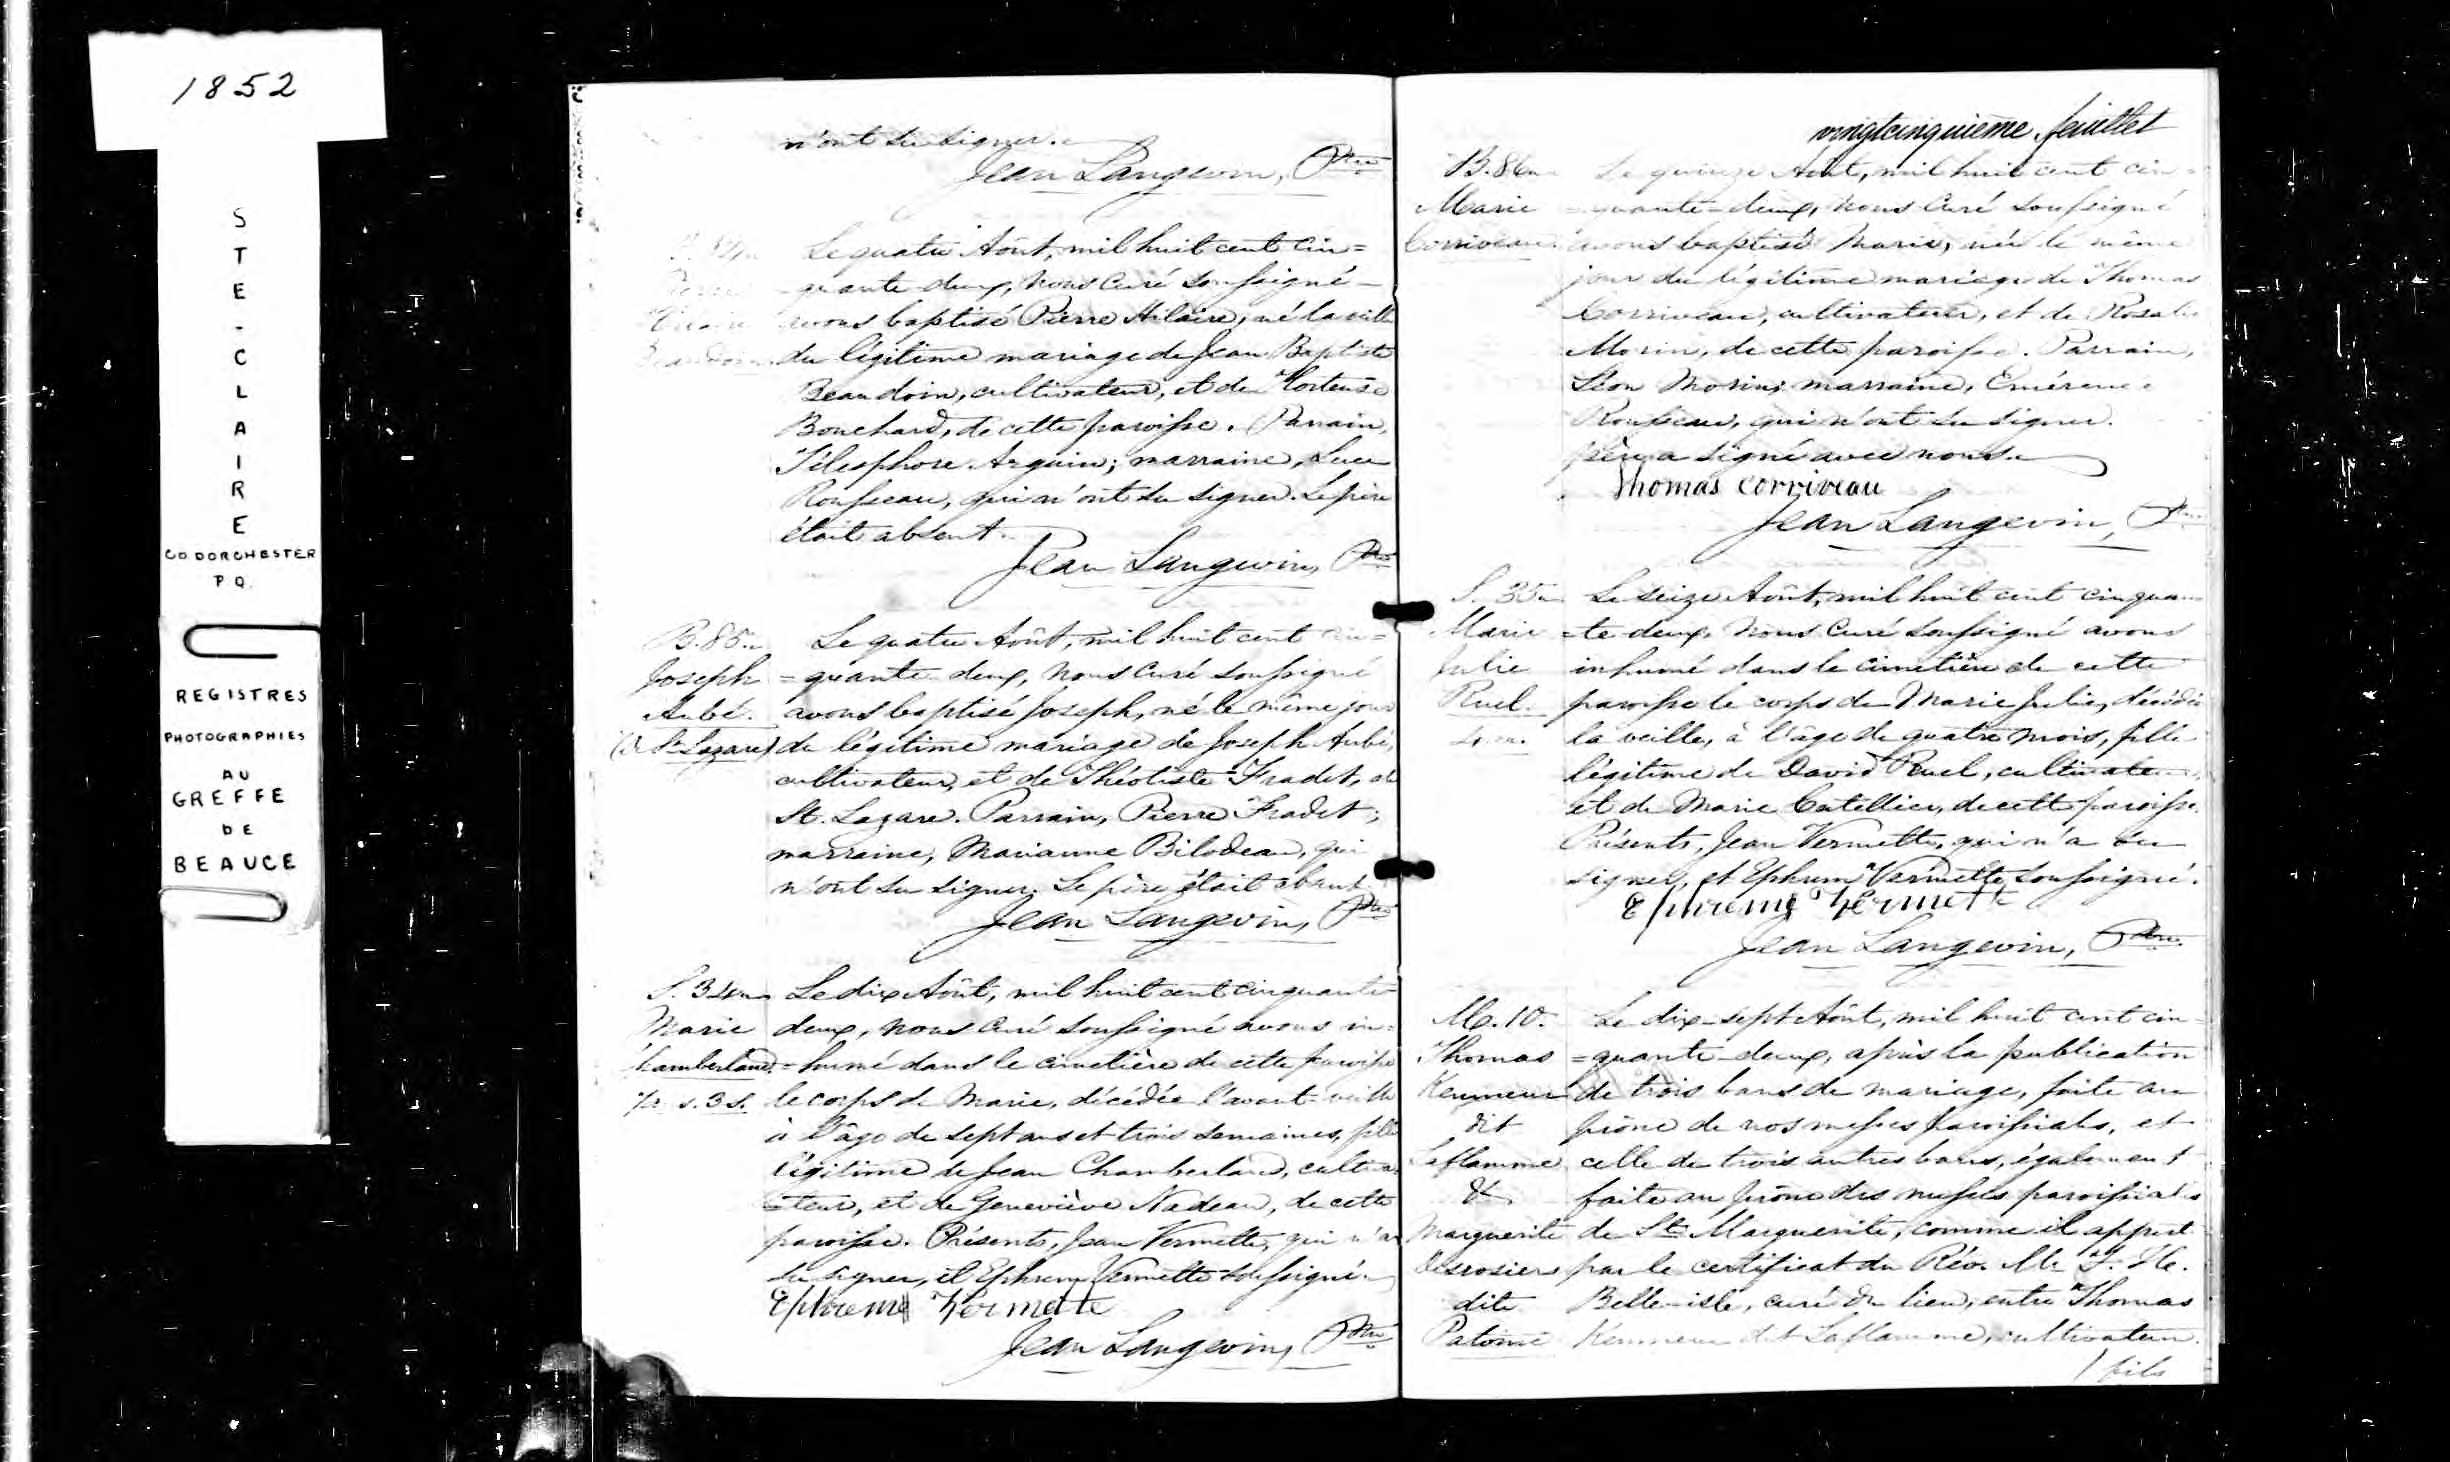 1852
STE-CLAIRE
CO DORCHESTER
P Q.
REGISTRES
PHOTOGRAPHIES
AU
GREFFE
DE
BEAUCE
n'ont su signer.
Jean Langevin, Ptre
Le quatre Août, mil huit cent cin=
=quante-deux, nous Curé soussigné
avons baptisé Pierre Hilaire, né la veille
du légitime mariage de Jean Baptiste
Beaudoin, cultivateur, et de Hortense
Bouchard, de cette paroisse. Parrain,
Télesphore Arguin; marraine, Luce
Rousseau, qui n'ont su signer. Le père
était absent.
Jean Langevin, Ptre
B. 85.
Joseph
Aubé.
(de St. Lazare)
Le quatre Août, mil huit cent cin=
=quante-deux, nous Curé soussigné
avons baptisé Joseph, né le même jour
du légitime mariage de Joseph Aubé,
cultivateur, et de Théotiste Fradet, de
St. Lazare. Parrain, Pierre Fradet;
marraine, Marianne Bilodeau, qui
n'ont su signer. Le père était absent.
Jean Langevin, Ptre
S. 34.
Marie
Chamberland.
7 a. 3 s.
Le dix Août, mil huit cent cinquante-
deux, nous Curé soussigné avons in=
=humé dans le cimetière de cette paroisse
le corps de Marie, décédée l'avant-veille
à l'âge de sept ans et trois semaines, fille
légitime de Jean Chamberland, cultiva=
=teur, et de Geneviève Nadeau, de cette
paroisse. Présents, Jean Vermette, qui n'a
su signer, et Ephrem Vermette soussigné.
Ephreme Vermette
Jean Langevin, Ptre
vingtcinquième feuillet
B. 86.
Marie
Corriveau.
Le quinze Août, mil huit cent cin=
=quante-deux, nous Curé soussigné
avons baptisé Marie, née le même
jour du légitime mariage de Thomas
Corriveau, cultivateur, et de Rosalie
Morin, de cette paroisse. Parrain,
Léon Morin; marraine, Emérence
Rousseau, qui n'ont su signer.
père a signé avec nous.
Thomas Corriveau
Jean Langevin, Ptre
S. 35.
Marie
Julie
Ruel.
4 m.
Le seize Août, mil huit cent cinquan=
=te-deux, nous Curé soussigné avons
inhumé dans le cimetière de cette
paroisse le corps de Marie Julie, décédée
la veille, à l'âge de quatre mois, fille
légitime de David Ruel, cultivateur,
et de Marie Catellier, de cette paroisse.
Présents, Jean Vermette, qui n'a su
signer, et Ephrem Vermette soussigné.
Ephreme Vermette
Jean Langevin, Ptre.
M. 10.
Thomas
Kemneur
dit
Laflamme
&
Marguerite
Desrosiers
dite
Patoine
Le dix-sept Août, mil huit cent cin=
=quante-deux, après la publication
de trois bans de mariage, faite au
prône de nos messes paroissiales, et
celle de trois autres bans, également
faite au prône des messes paroissiales
de Ste Marguerite, comme il appert
par le certificat du Rév. Mr J. H.
Belle-isle, curé du lieu, entre Thomas
Kemneur dit Laflamme, cultivateur.
/ fils